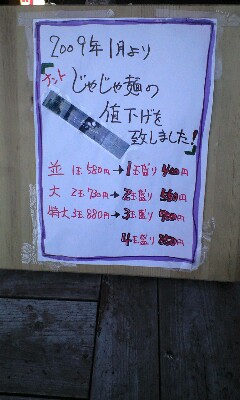 2009年1月より
ホット
じゃじゃ麺の
値下げを
致しました!
並 1玉580円→1玉盛り400円
大 2玉730円→2玉盛り550円
特大3玉880円→3玉盛り700円
4玉盛り850円